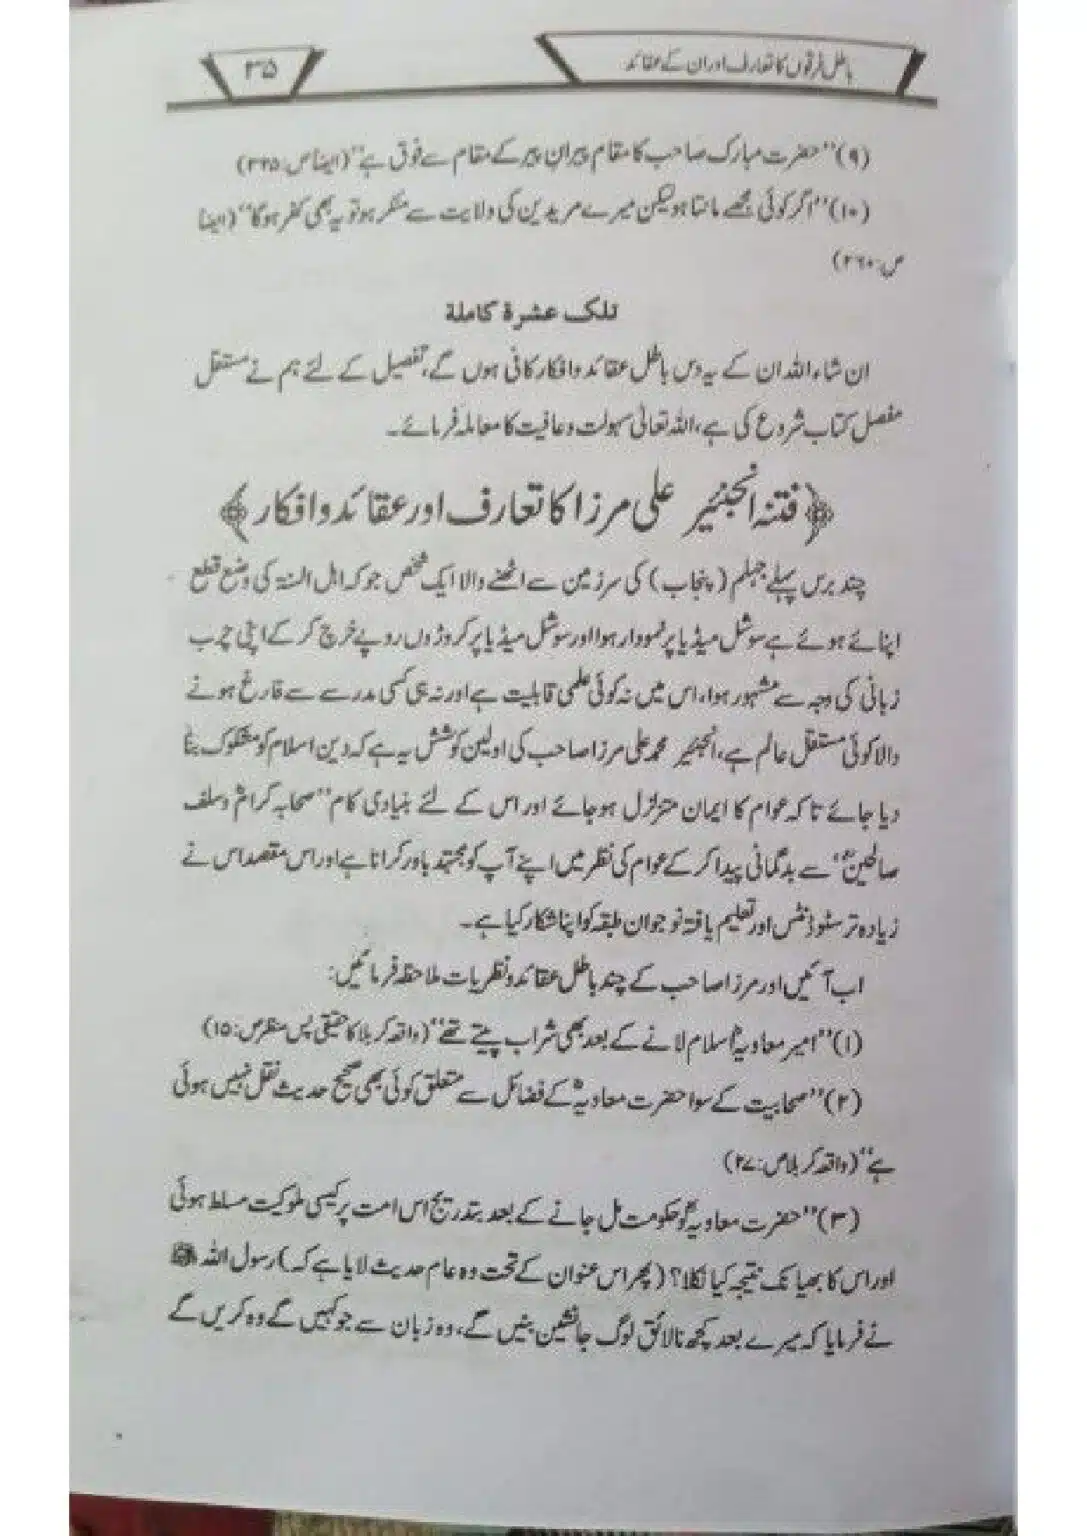 باطل فرقوں کا تعارف اور ان کے عقائد
۳۵
(۹)’’حضرت مبارک صاحب کا مقام پیرانِ پیر کے مقام سے فوق ہے‘‘(ایضا ص:۳۲۵)
(۱۰)’’اگر کوئی مجھے مانتا ہو لیکن میرے مریدین کی ولایت سے منکر ہو تو یہ بھی کفر ہوگا‘‘(ایضا
ص:۲۶۰)
تلک عشرة کاملة
ان شاء اللہ ان کے یہ دس باطل عقائد و افکار کافی ہوں گے، تفصیل کے لئے ہم نے مستقل
مفصل کتاب شروع کی ہے، اللہ تعالیٰ سہولت و عافیت کا معاملہ فرمائے۔
﴿فتنہ انجنئیر علی مرزا کا تعارف اور عقائد و افکار﴾
چند برس پہلے جہلم (پنجاب) کی سرزمین سے اٹھنے والا ایک شخص جو کہ اہل السنۃ کی وضع قطع
اپنائے ہوئے ہے سوشل میڈیا پر نمودار ہوا اور سوشل میڈیا پر کروڑوں روپے خرچ کر کے اپنی چرب
زبانی کی وجہ سے مشہور ہوا، اس میں نہ کوئی علمی قابلیت ہے اور نہ ہی کسی مدرسے سے فارغ ہونے
والا کوئی مستقل عالم ہے، انجنئیر محمد علی مرزا صاحب کی اولین کوشش یہ ہے کہ دین اسلام کو مشکوک بنا
دیا جائے تاکہ عوام کا ایمان متزلزل ہو جائے اور اس کے لئے بنیادی کام ’’صحابہ کرامؓ و سلف
صالحینؒ‘‘ سے بدگمانی پیدا کر کے عوام کی نظر میں اپنے آپ کو مجتہد باور کراتا ہے اور اس مقصد اس نے
زیادہ تر سٹوڈنٹس اور تعلیم یافتہ نوجوان طبقہ کو اپنا شکار کیا ہے۔
اب آئیں اور مرزا صاحب کے چند باطل عقائد و نظریات ملاحظہ فرمائیں:
(۱)’’امیر معاویہؓ اسلام لانے کے بعد بھی شراب پیتے تھے‘‘(واقعہ کربلا کا حقیقی پس منظر ص:۱۵)
(۲)’’صحابیت کے سوا حضرت معاویہؓ کے فضائل سے متعلق کوئی بھی صحیح حدیث نقل نہیں ہوئی
ہے‘‘(واقعہ کربلا ص:۲۷)
(۳)’’حضرت معاویہؓ کو حکومت مل جانے کے بعد بتدریج اس امت پر کیسی ملوکیت مسلط ہوئی
اور اس کا بھیانک نتیجہ کیا نکلا؟ (پھر اس عنوان کے تحت وہ عام حدیث لایا ہے کہ) رسول اللہ ﷺ
نے فرمایا کہ میرے بعد کچھ نالائق لوگ جانشین بنیں گے، وہ زبان سے جو کہیں گے وہ کریں گے